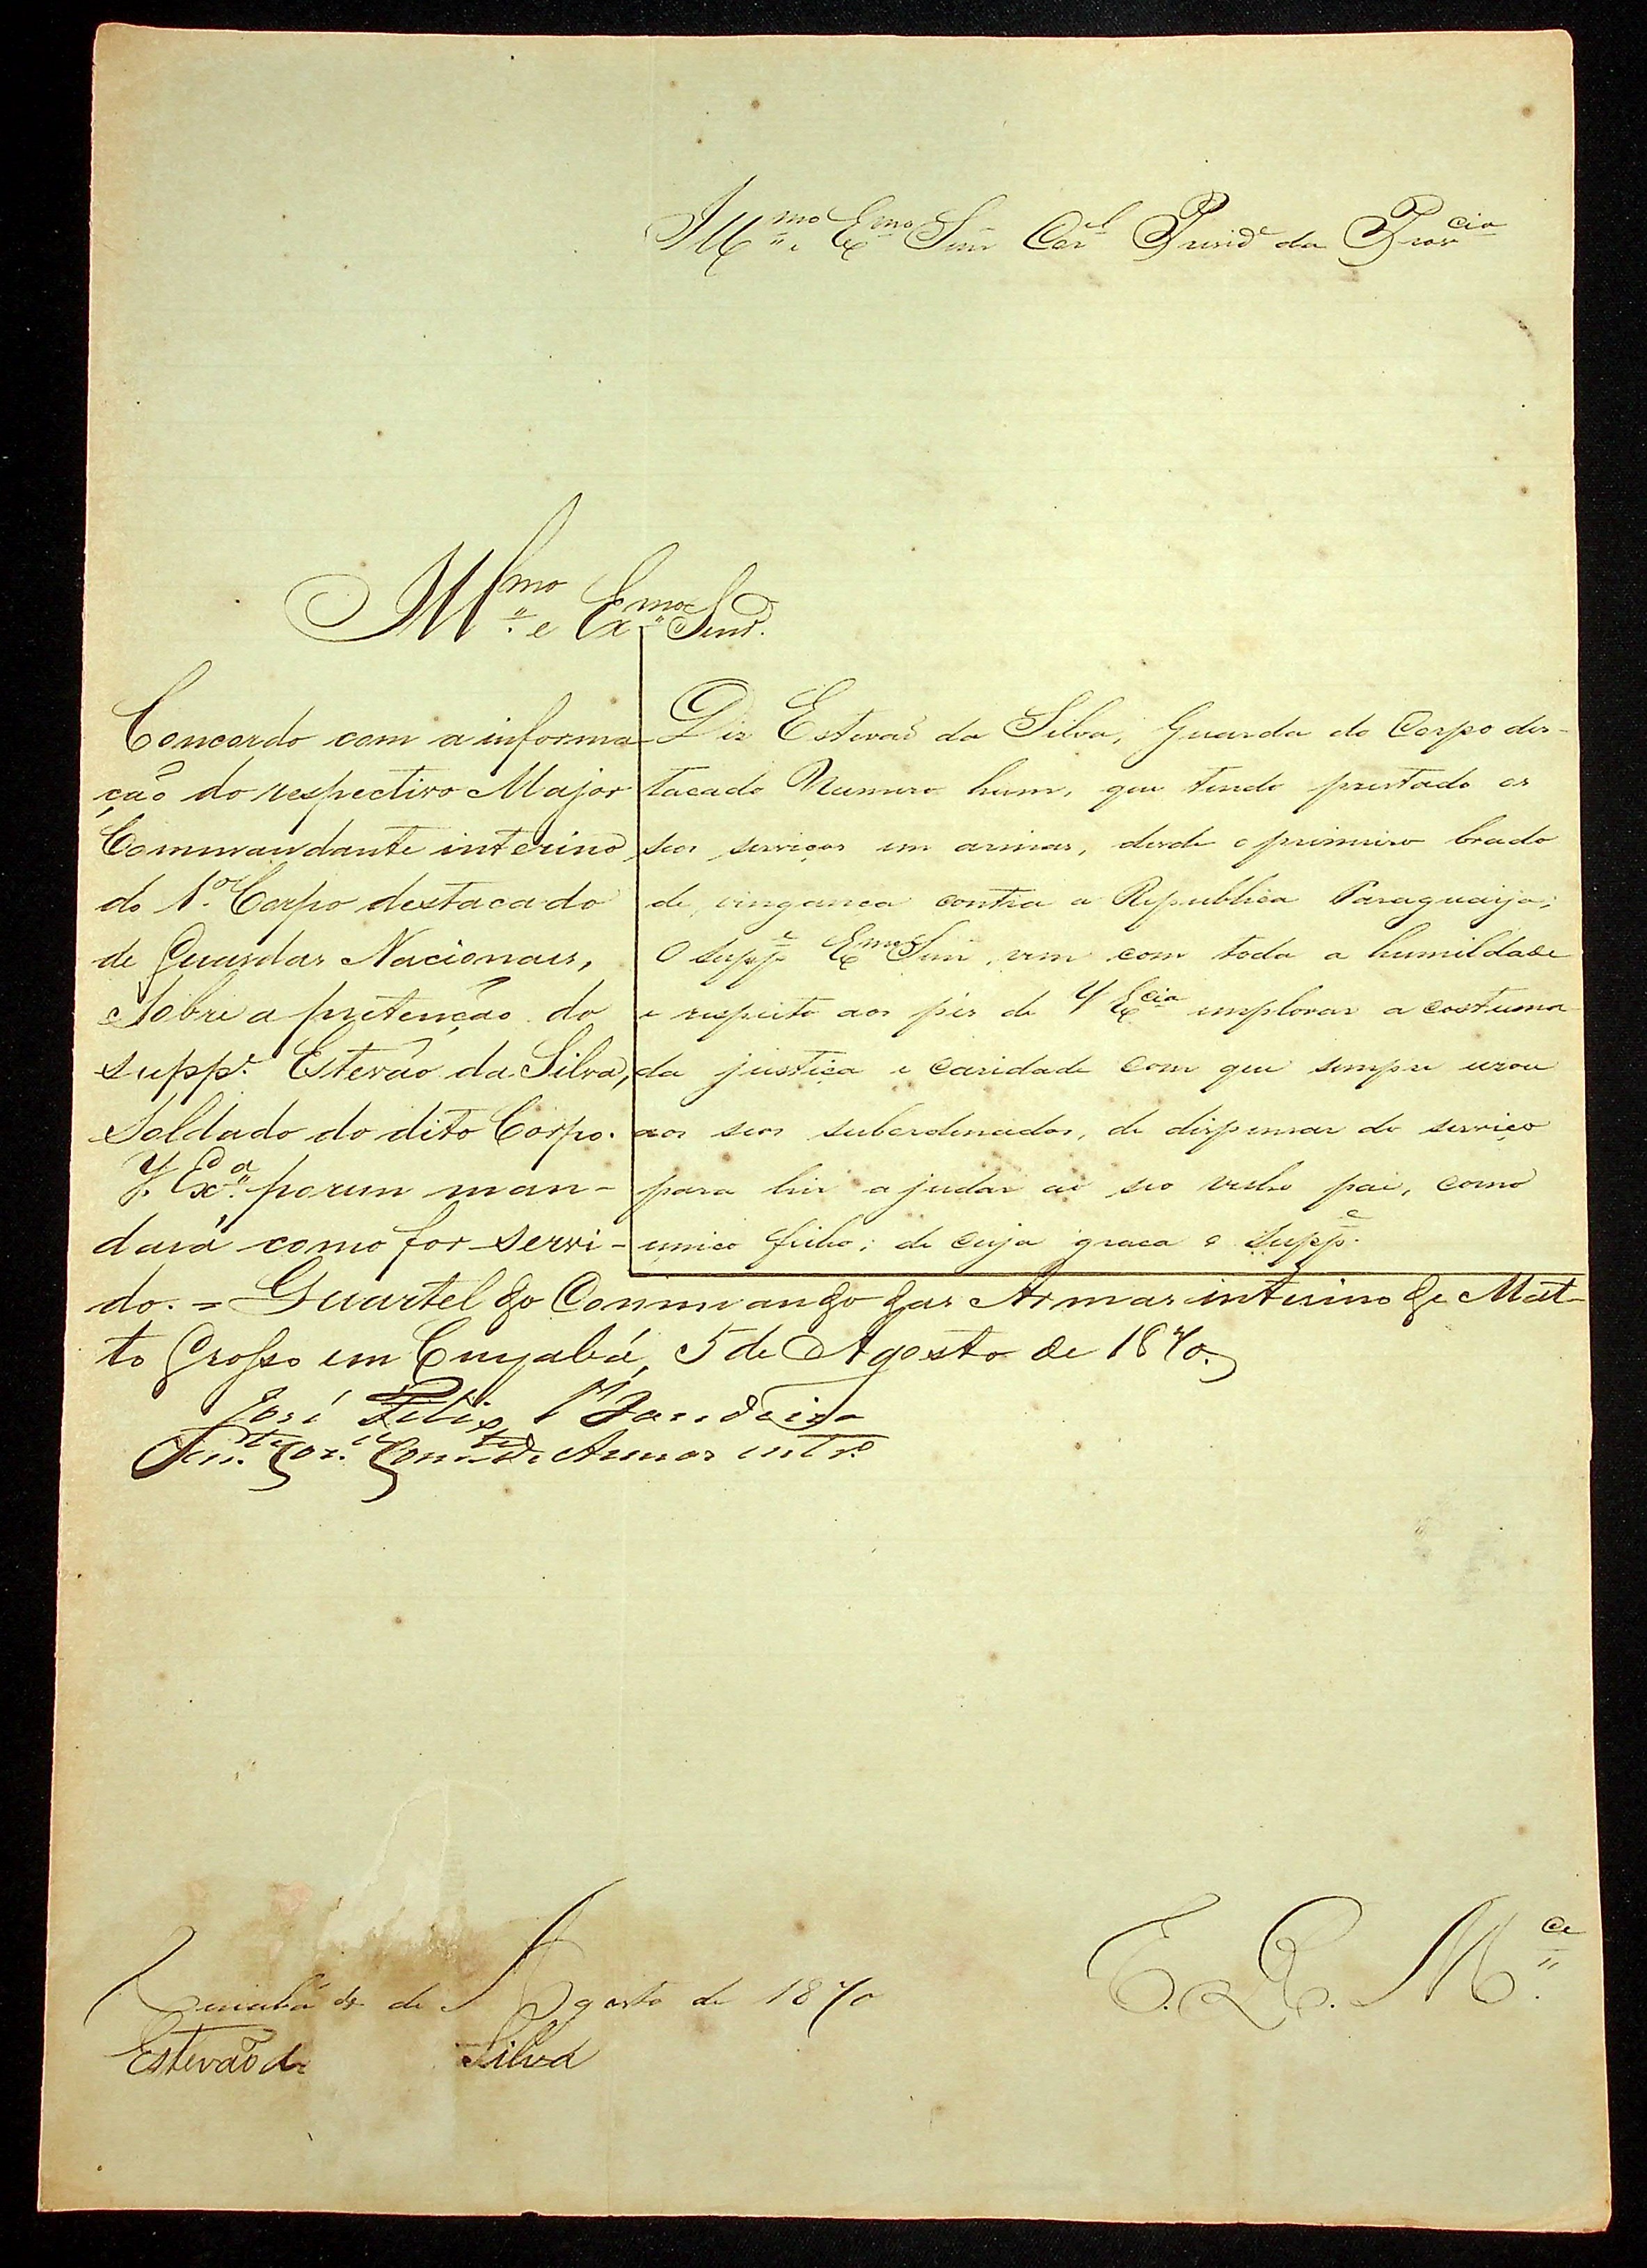 Illmo e Exmo Snr Cor.l Presid.e da Prov.cia
Illmo e Exmo Snr.
Concordo com a informa-
ção do respectivo Major
Commandante interino
do 1.º Corpo destacado
de Guardas Nacionaes,
Sobre a pretenção do
supp.e Estevão da Silva,
Soldado do dito Corpo.
V. Ex.ª porem man-
dará como for servi-
do. = Quartel do Commando das Armas interino de Mat-
to Grosso em Cuyabá, 5 de Agosto de 1870.
José Felix Bandeira
Ten.te Cor.el Com.te de Armas intr.º
Diz Estevaõ da Silva, Guarda do Corpo des-
tacado Numero hum, que tendo prestado os
seos serviços em armas, desde o primeiro brado
de vingança contra a Republica Paraguaija;
O supp.e Exmo Snr, vem com toda a humildade
e respeito aos pés de V Ex.cia implorar a costuma-
da justiça e caridade com que sempre uzou
aos seos subordinados, de dispensar do serviço
para hir ajudar ao seo velho pai, como
unico filho; de cuja graca o Supp.e
E. R. M.ce
Cuiabá de Agosto de 1870
Estevaõ da Silva